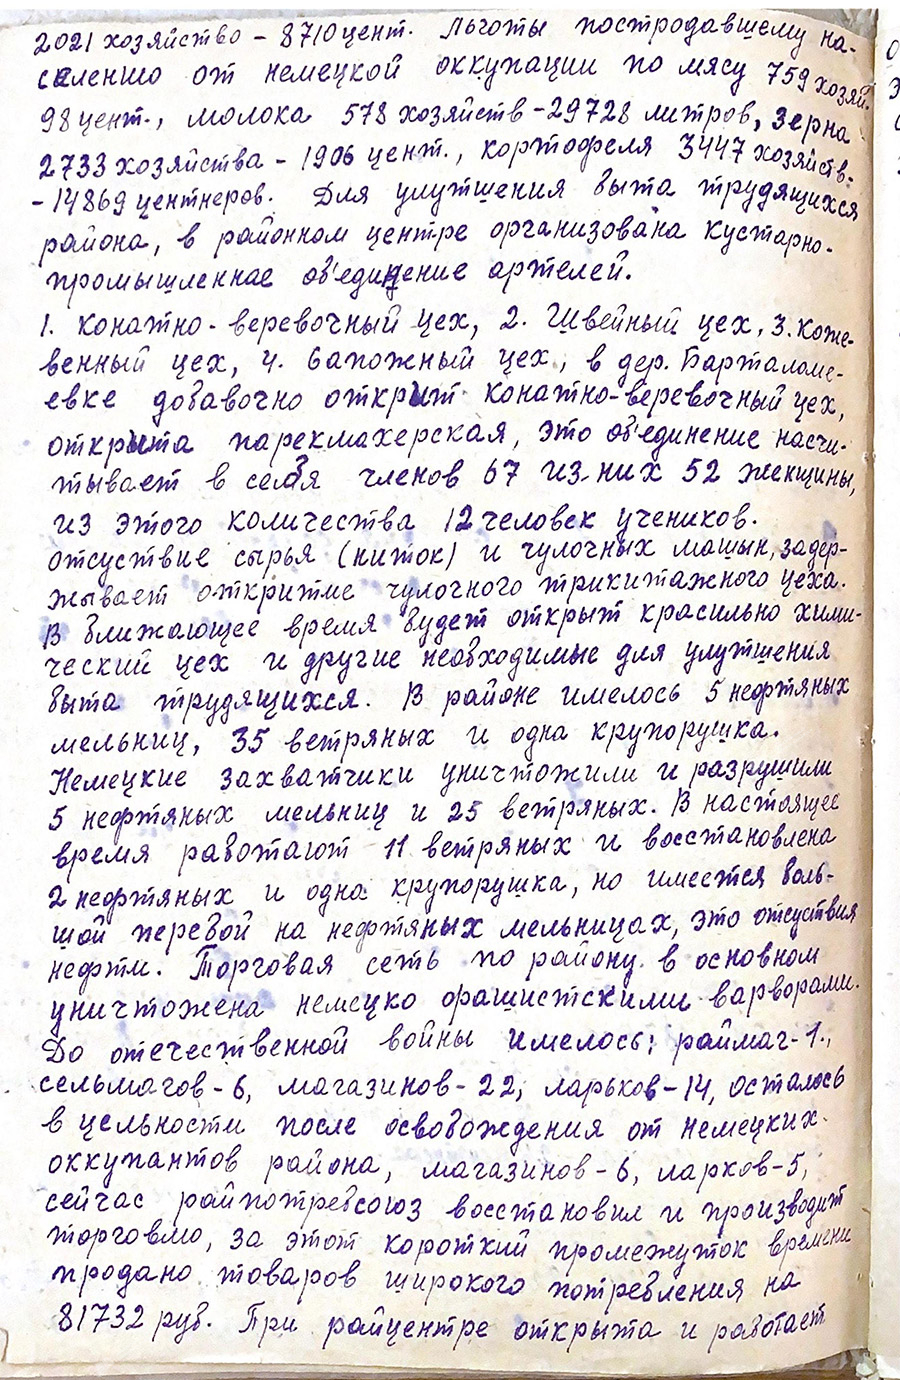 2021 хозяйство - 8710 цент. Льготы постродавшему на-
селению от немецкой оккупации по мясу 759 хозяй.
98 цент., молока 578 хозяйств - 29728 литров, зерна
2733 хозяйства - 1906 цент., кортофеля 3447 хозяйств.
- 14869 центнеров. Для улутшения быта трудящихся
района, в районном центре организована кустарно-
промышленное об'единение артелей.
1. Конатно-веревочный цех, 2. Швейный цех, 3. Коже-
венный цех, 4. Сапожный цех, в дер. Барталоме-
евке добавочно открыт конатно-веревочный цех,
открыта парекмахерская, это об'единение насчи-
тывает в себя членов 67 из-них 52 женщины,
из этого количества 12 человек учеников.
Отсуствие сырья (ниток) и чулочных машын, задер-
жывает откритие чулочного трикитажного цеха.
В ближающее время будет открыт красильно хими-
ческий цех и другие необходимые для улутшения
быта трудящихся. В районе имелось 5 нефтяных
мельниц, 35 ветряных и одна крупорушка.
Немецкие захватчики уничтожили и разрушили
5 нефтяных мельниц и 25 ветряных. В настоящее
время работают 11 ветряных и восстановлена
2 нефтяных и одна крупорушка, но имеется боль-
шой перебой на нефтяных мельницах, это отсуствия
нефти. Торговая сеть по району в основном
уничтожена немецко фашистскими варворами.
До отечественной войны имелось; раймаг-1.,
сельмагов-6, магазинов-22, ларьков-14, осталось
в цельности после освобождения от немецких
оккупантов района, магазинов-6, ларков-5,
сейчас райпотребсоюз восстановил и производит
торговлю, за этот короткий промежуток времени
продано товаров широкого потребления на
81732 руб. При райцентре открыта и работает